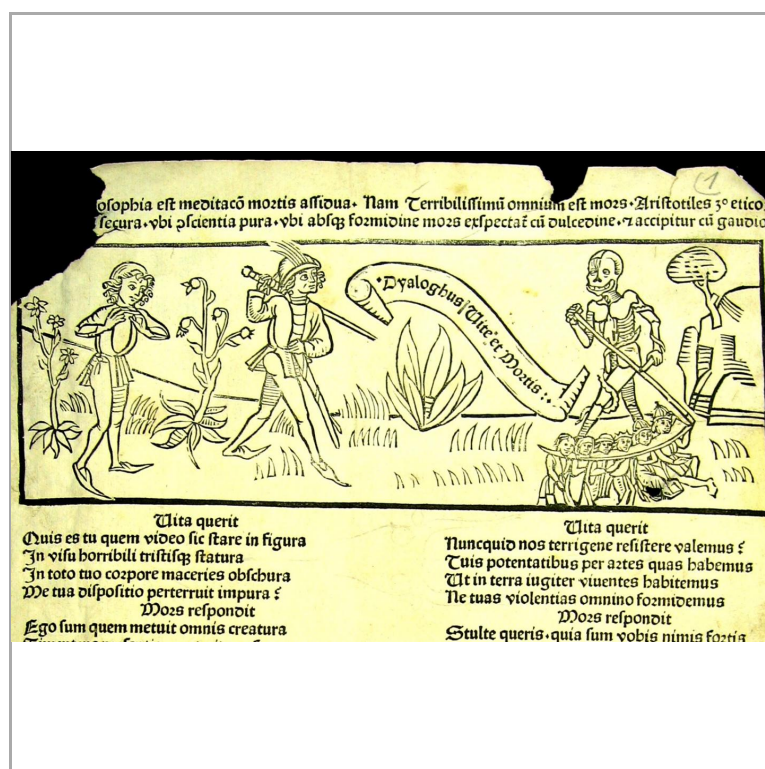 osophia est meditacõ mortis assidua. Nam Terribilissimũ omnium est mors. Aristotiles 3º etico
secura. vbi ꝓscientia pura. vbi absqꝫ formidine mors exspectat̃ cũ dulcedine. ⁊ accipitur cũ gaudio
1
Dyaloghus Uite et Mortis:.
Uita querit
Quis es tu quem video sic stare in figura
In visu horribili tristisqꝫ statura
In toto tuo corpore maceries obschura
Me tua dispositio perterruit impura ?
Mors respondit
Ego sum quem metuit omnis creatura
Uita querit
Nuncquid nos terrigene resistere valemus ?
Tuis potentatibus per artes quas habemus
Ut in terra iugiter viuentes habitemus
Ne tuas violentias omnino formidemus
Mors respondit
Stulte queris. quia sum vobis nimis fortis